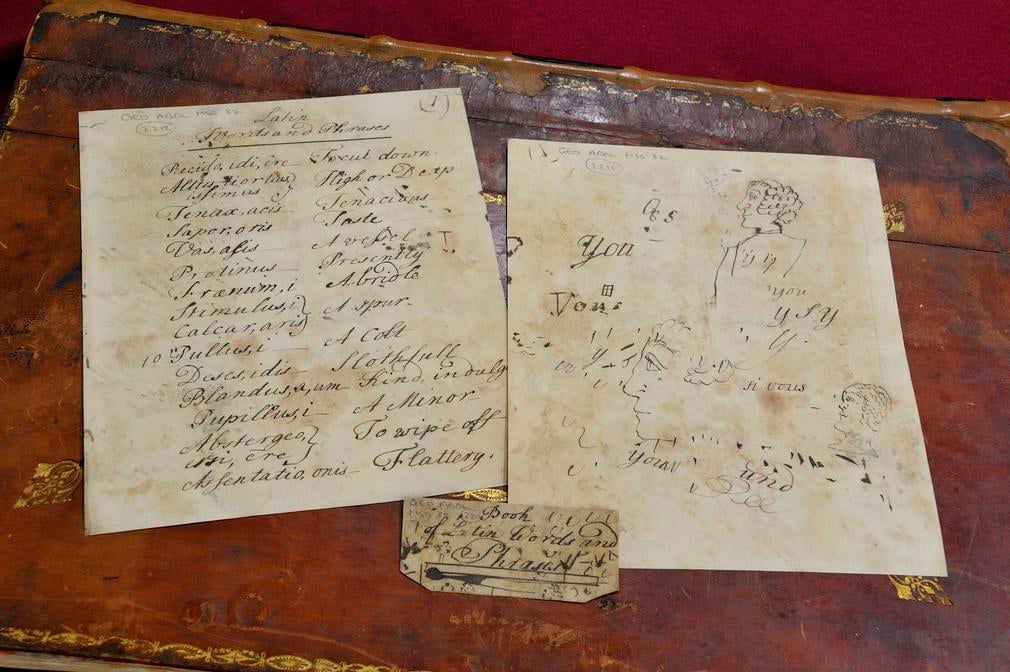 GEO ADDL MSS 32
2212
(1)
Latin
Words and Phrases
Recido, idi, ĕre To cut down.
Altus, tior tius High or Deep
issimus
Tenax, acis Tenacious
Sapor, oris Taste
Vas, asis A vessel
Protinus Presently
Frænum, i A bridle
Stimulus, i
Calcar, aris A spur
10 Pullus, i A Colt
Deses, idis Slothfull
Blandus, a, um Kind, indulg
Pupillus, i A Minor
Abstergeo, To wipe off
ssi, ēre
Assentatio, onis Flattery.
GEO ADDL MSS 32
2211
You
Vous
you
y S y
y.
y
si vous
your
und
GEO ADDL
MSS 32
Book
of Latin Words and
Phrases